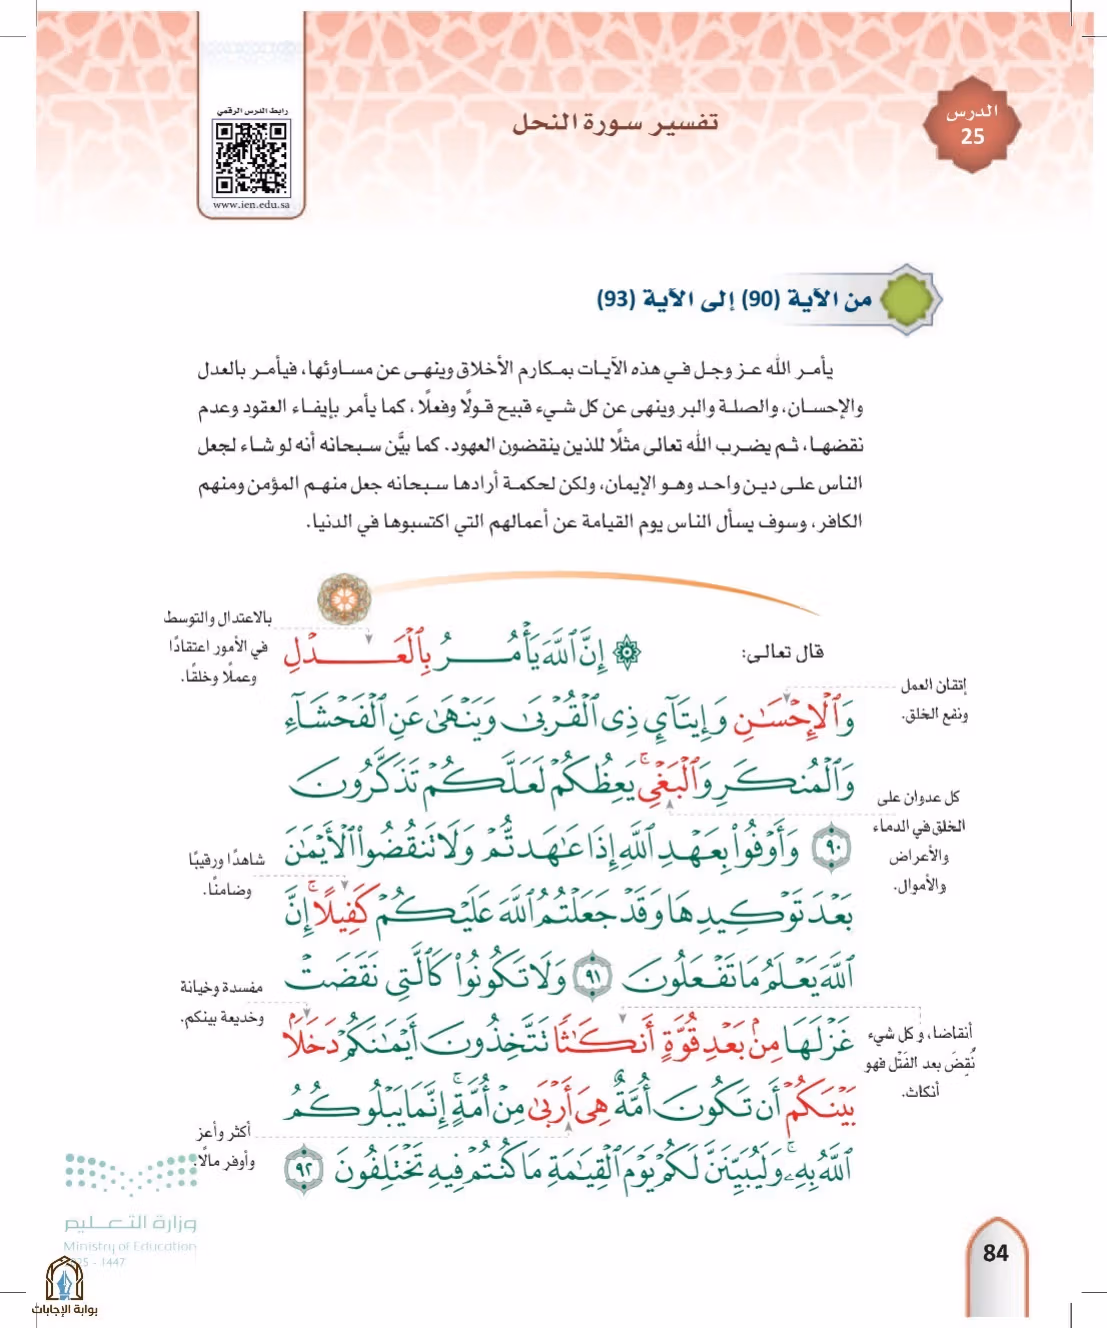 الدرس
25
تفسير سورة النحل
رابط الدرس الرقمي
www.ien.edu.sa
من الآية (90) إلى الآية (93)
يأمر الله عز وجل في هذه الآيات بمكارم الأخلاق وينهى عن مساوئها، فيأمر بالعدل
والإحسان، والصلة والبر وينهى عن كل شيء قبيح قولًا وفعلًا، كما يأمر بإيفاء العقود وعدم
نقضها، ثم يضرب الله تعالى مثلًا للذين ينقضون العهود. كما بيَّن سبحانه أنه لو شاء لجعل
الناس على دين واحد وهو الإيمان، ولكن لحكمة أرادها سبحانه جعل منهم المؤمن ومنهم
الكافر، وسوف يسأل الناس يوم القيامة عن أعمالهم التي اكتسبوها في الدنيا.
قال تعالى:
۞ إِنَّ ٱللَّهَ يَأْمُرُ بِٱلْعَدْلِ
وَٱلْإِحْسَٰنِ وَإِيتَآئِ ذِى ٱلْقُرْبَىٰ وَيَنْهَىٰ عَنِ ٱلْفَحْشَآءِ
وَٱلْمُنكَرِ وَٱلْبَغْىِ ۚ يَعِظُكُمْ لَعَلَّكُمْ تَذَكَّرُونَ
٩٠ وَأَوْفُوا۟ بِعَهْدِ ٱللَّهِ إِذَا عَٰهَدتُّمْ وَلَا تَنقُضُوا۟ ٱلْأَيْمَٰنَ
بَعْدَ تَوْكِيدِهَا وَقَدْ جَعَلْتُمُ ٱللَّهَ عَلَيْكُمْ كَفِيلًا ۚ إِنَّ
ٱللَّهَ يَعْلَمُ مَا تَفْعَلُونَ ٩١ وَلَا تَكُونُوا۟ كَٱلَّتِى نَقَضَتْ
غَزْلَهَا مِنۢ بَعْدِ قُوَّةٍ أَنكَٰثًا تَتَّخِذُونَ أَيْمَٰنَكُمْ دَخَلًۢا
بَيْنَكُمْ أَن تَكُونَ أُمَّةٌ هِىَ أَرْبَىٰ مِنْ أُمَّةٍ ۚ إِنَّمَا يَبْلُوكُمُ
ٱللَّهُ بِهِۦ ۚ وَلَيُبَيِّنَنَّ لَكُمْ يَوْمَ ٱلْقِيَٰمَةِ مَا كُنتُمْ فِيهِ تَخْتَلِفُونَ ٩٢
بالاعتدال والتوسط
في الأمور اعتقادًا
وعملًا وخلقًا.
إتقان العمل
ونفع الخلق.
كل عدوان على
الخلق في الدماء
والأعراض
والأموال.
شاهدًا ورقيبًا
وضامنًا.
مفسدة وخيانة
وخديعة بينكم.
أنقاضا، وكل شيء
نُقِضَ بعد الفَتْل فهو
أنكاث.
أكثر وأعز
وأوفر مالًا.
وزارة التعليم
Ministry of Education
1447
بوابة الإجابات
84